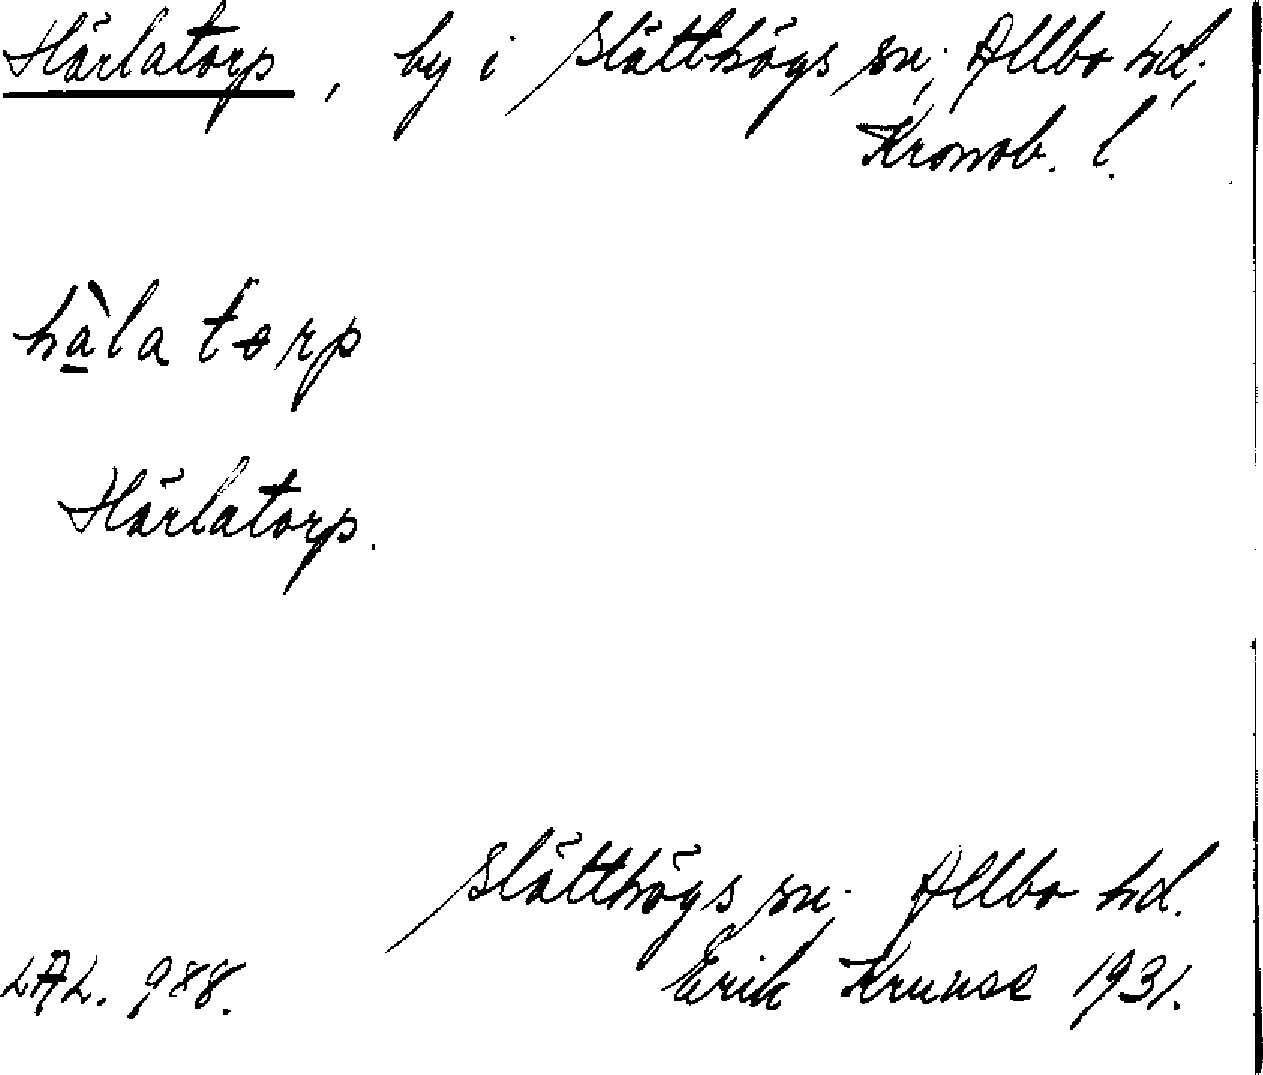 Härlatorp, by i Slätthögs sn; Allbo hd;
Kronob. l.
hàla torp
Härlatorp.
Slätthögs sn; Allbo hd.
LAL. 988. Erik Kruuse 1931.